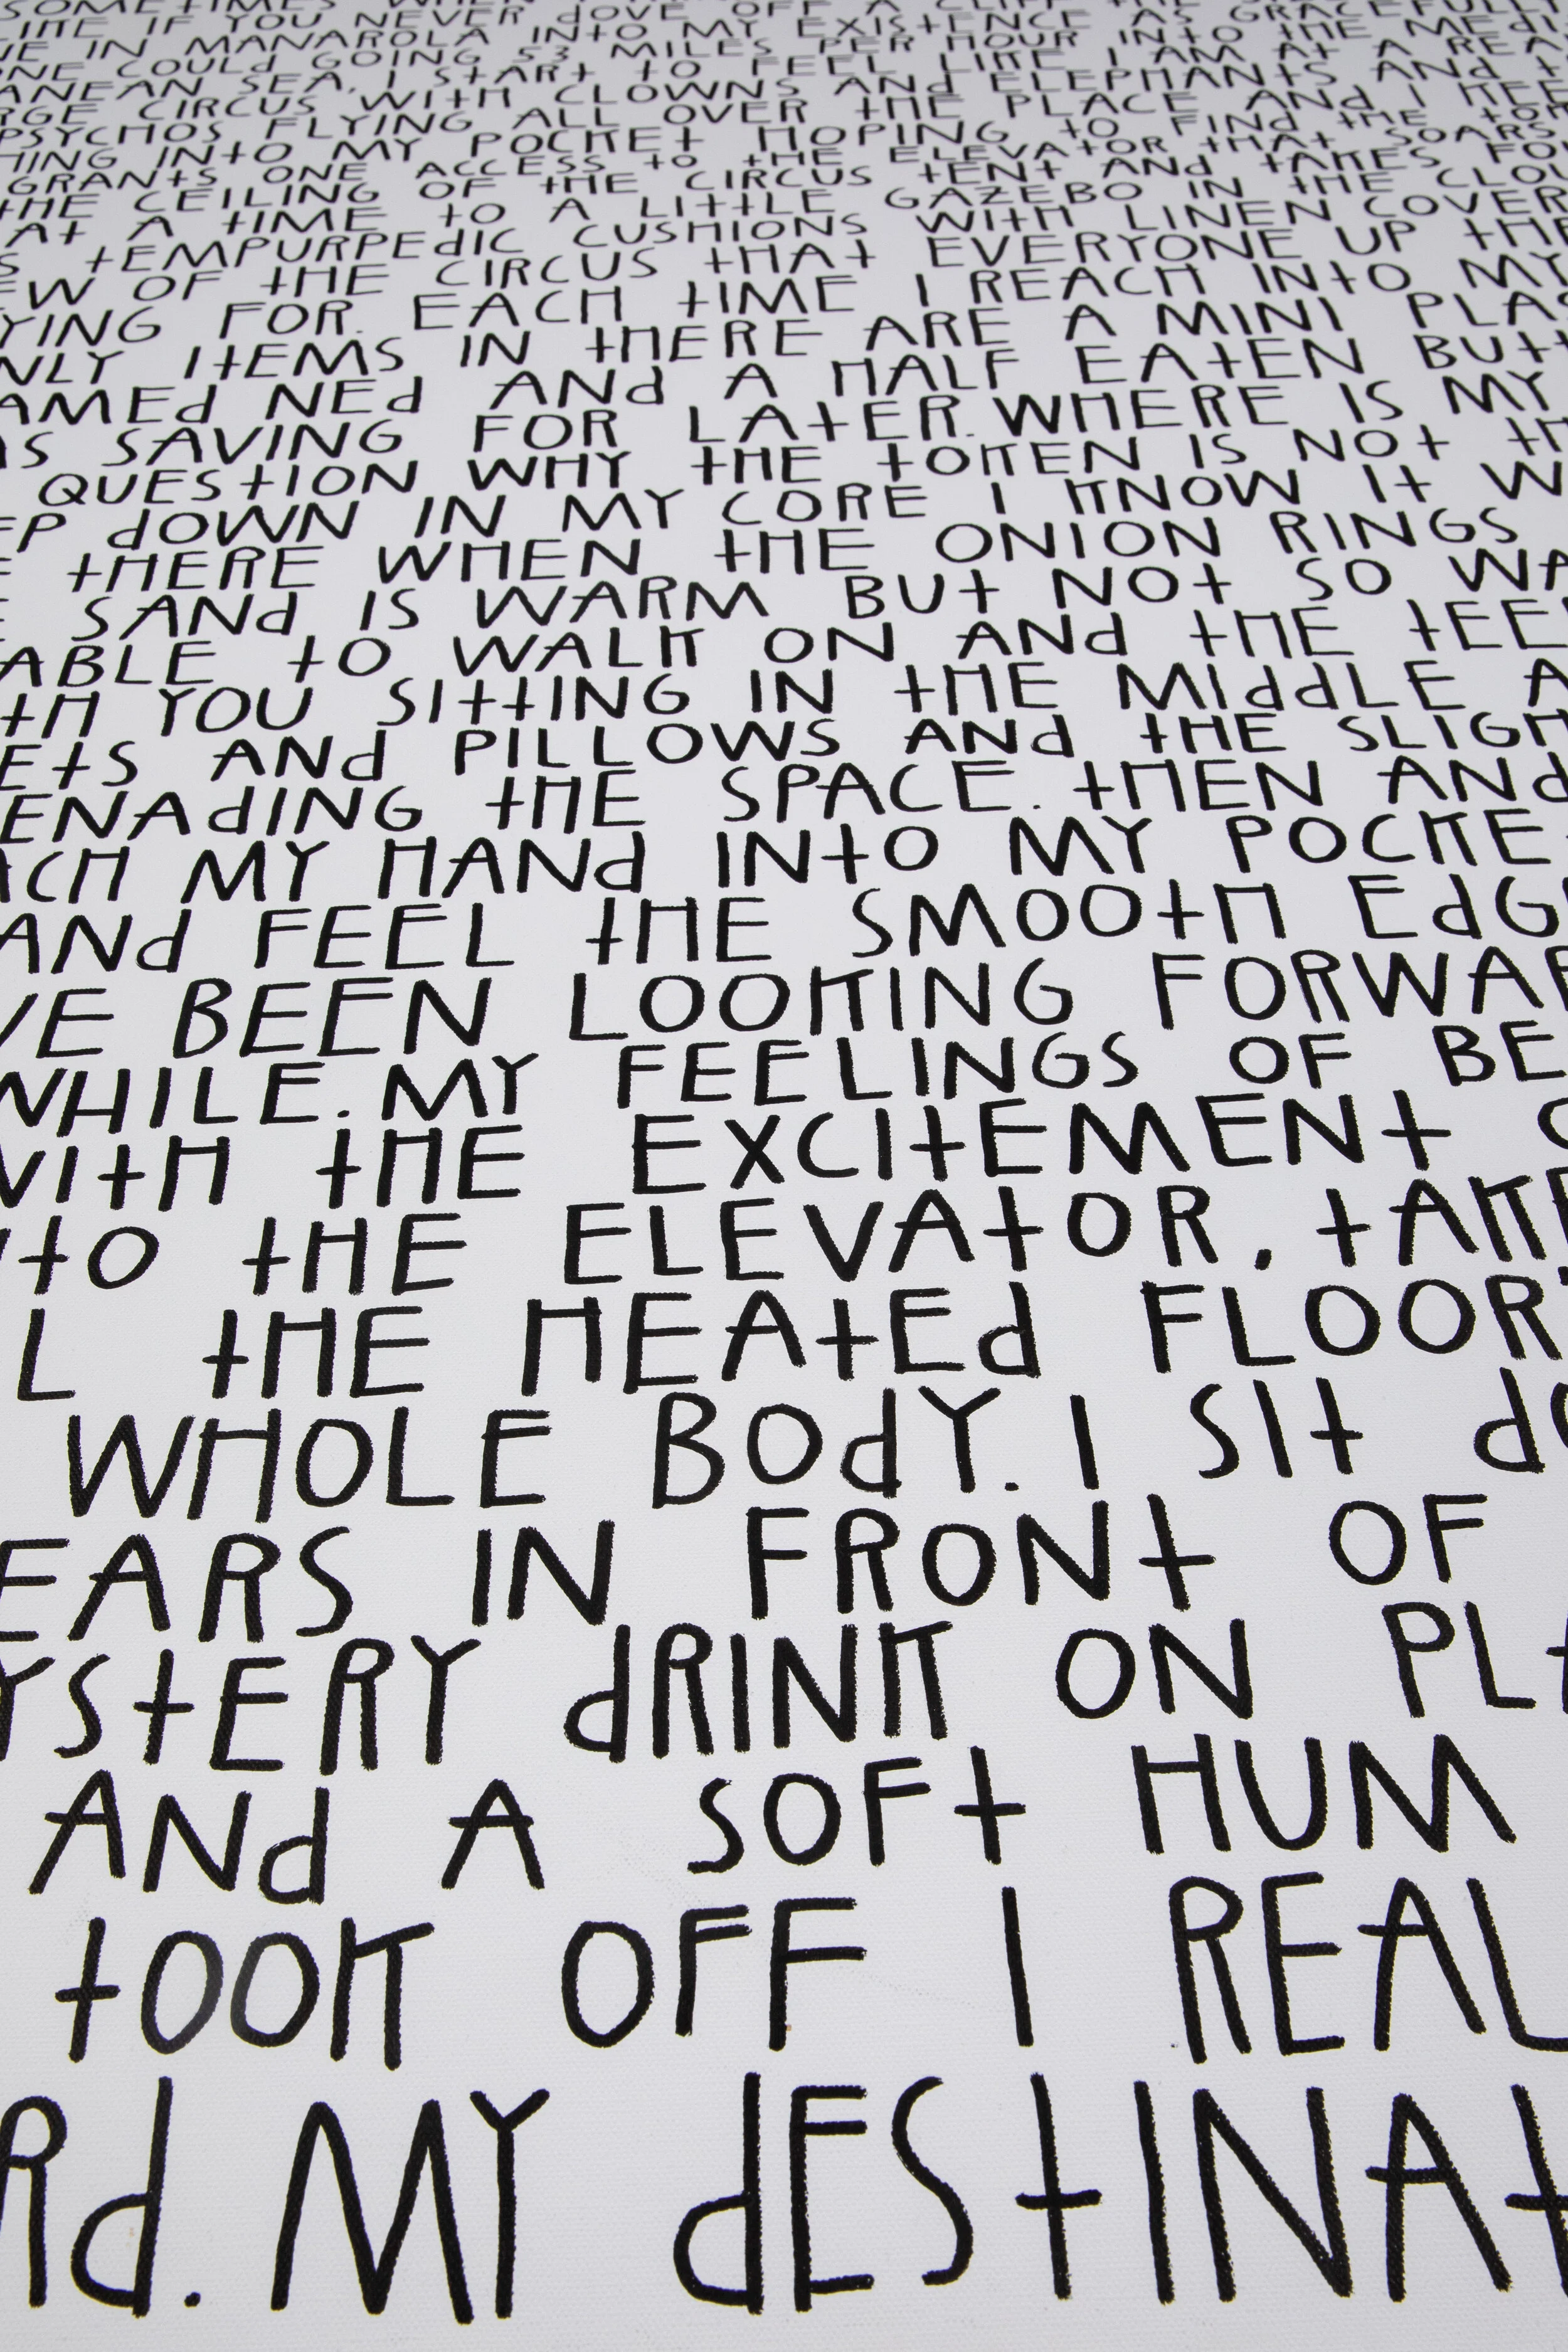 SOMETIMES WHEN
IF YOU NEVER dOVE OFF A
IN MANAROLA INTO MY EXISTENCE AS GRACEFULLY
ONE COULd GOING 53 MILES PER HOUR INTO THE MEdI
ANEAN SEA, I StARt tO FEEL LIKE I AM At A
RGE CIRCUS WItH CLOWNS ANd ELEPHANtS ANd
PSYCHOS FLYING ALL OVER tHE PLACE ANd I
HING INtO MY POCKEt HOPING tO FINd tHE
GRANtS ONE ACCESS tO tHE ELEVAtOR tHAt SOARS
tHE CEILING OF tHE CIRCUS tENt ANd tAKES
At A tIME tO A LIttLE GAZEBO IN tHE CLOU
S tEMPURPEdIC CUSHIONS WItH LINEN COVER
EW OF tHE CIRCUS tHAt EVERYONE UP tHE
YING FOR. EACH tIME I REACH INtO MY
NLY ItEMS IN tHERE ARE A MINI PLAS
AMEd NEd ANd A HALF EAtEN BUtt
AS SAVING FOR LAtER. WHERE IS MY
QUEStION WHY tHE tOKEN IS NOt tH
EP dOWN IN MY CORE I KNOW It W
E tHERE WHEN tHE ONION RINGS
E SANd IS WARM BUt NOt SO WA
ABLE tO WALK ON ANd tHE tEE
tH YOU SIttING IN tHE MIddLE A
EtS ANd PILLOWS ANd tHE SLIGH
ENAdING tHE SPACE. tHEN ANd
ACH MY HANd INtO MY POCKE
ANd FEEL tHE SMOOtH EdG
VE BEEN LOOKING FORWAR
WHILE. MY FEELINGS OF BE
WItH tHE EXCItEMENt
NtO tHE ELEVAtOR, tAKE
L tHE HEAtEd FLOOR
WHOLE BOdY. I SIt dO
EARS IN FRONt OF
YStERY dRINK ON PLA
ANd A SOFt HUM
tOOK OFF I REAL
Rd. MY dEStINAt